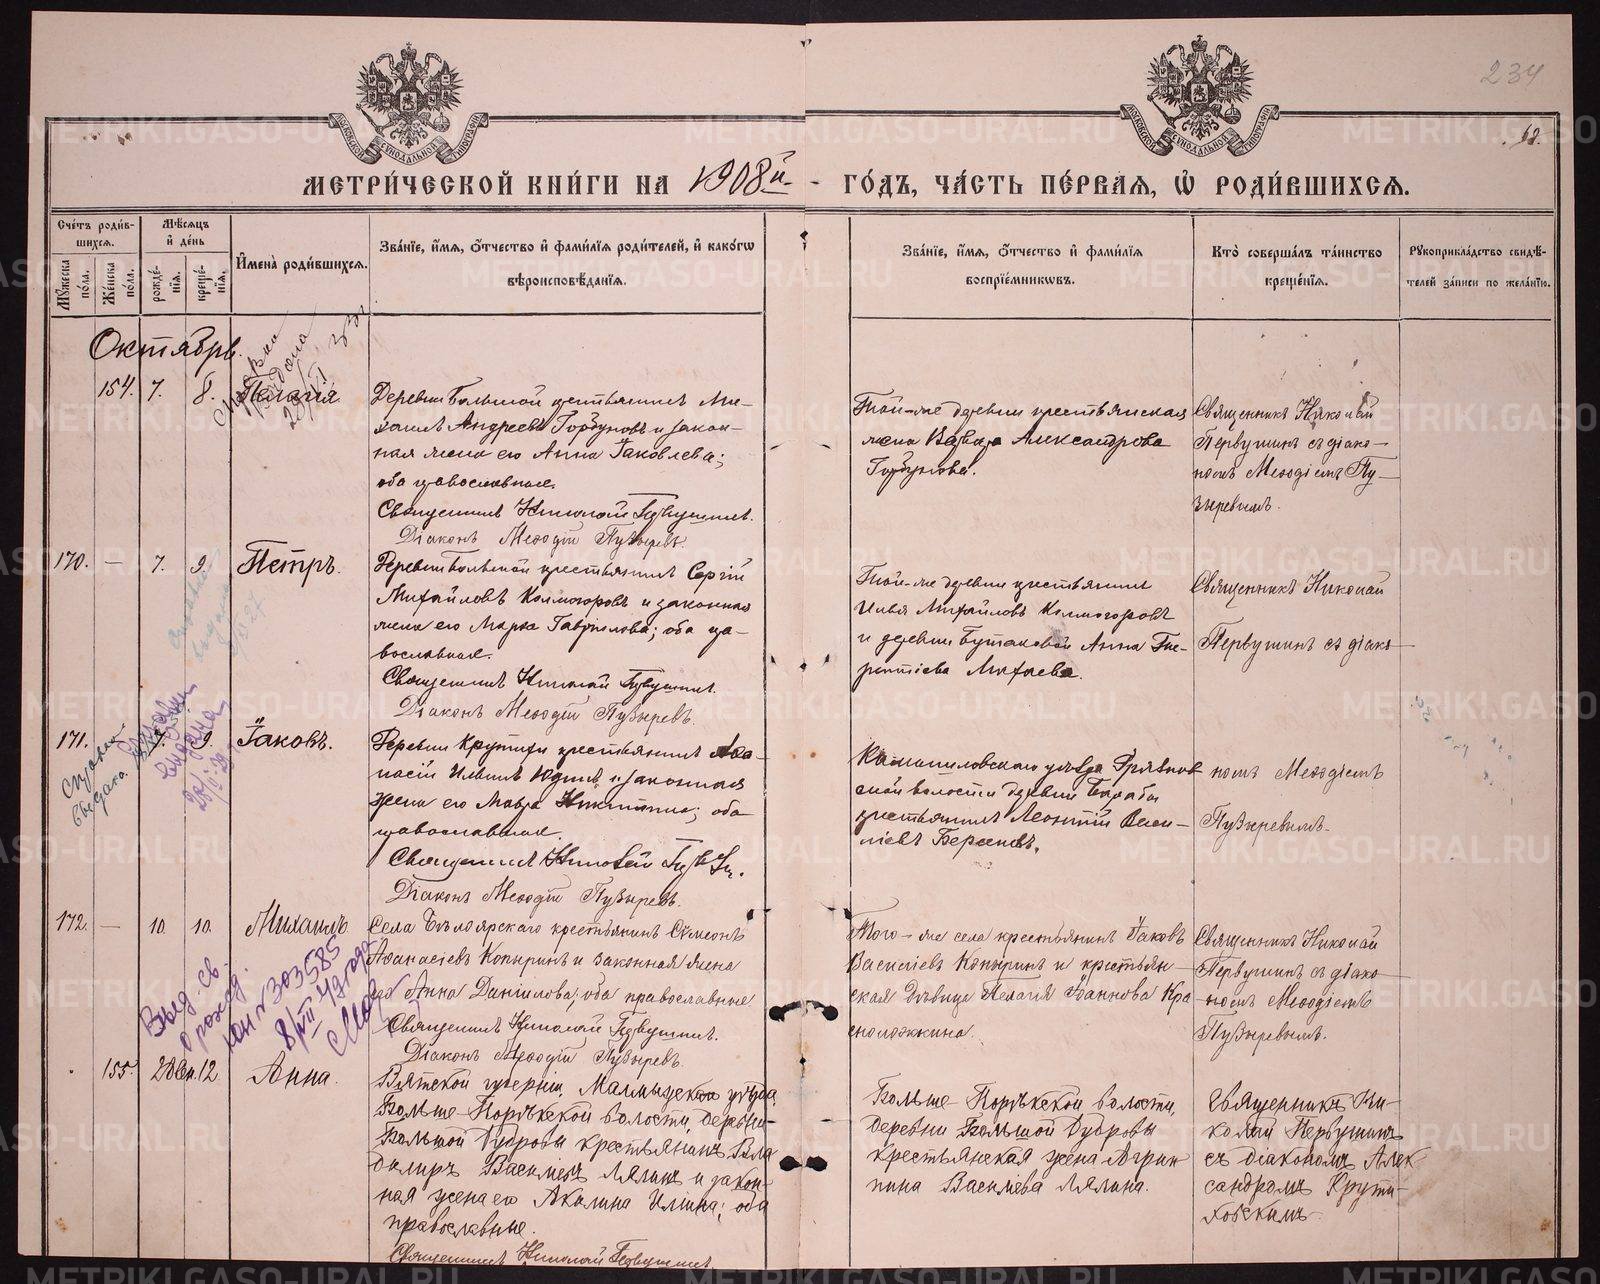 234
68.
МЕТРИ́ЧЕСКОЙ КНИ́ГИ НА 1908й ГО́ДЪ, ЧА́СТЬ ПЕ́РВАЯ, Ѡ РОДИ́ВШИХСЯ.
Сче́тъ роди́вшихся.
Му́жеска по́ла.
Же́нска по́ла.
Мѣ́сяцъ и҆ де́нь
рожде́нїя.
креще́нїя.
И҆мена̀ роди́вшихся.
Зва́нїе, и҆́мя, о҆́тчество и҆ фами́лїя роди́телей, и҆ како́гѡ
вѣроисповѣ́данїя.
Зва́нїе, и҆́мя, о҆́тчество и҆ фами́лїя
воспрїе́мникѡвъ.
Кто̀ соверша́лъ та́инство
креще́нїя.
Рꙋкоприкла́дство свидѣ́-
телей за́писи по жела́нїю.
Октябрь.
154. 7. 8. Пелагія
Деревни Большой крестьянинъ Ми-
хаилъ Андреевъ Горбуновъ и закон-
ная жена его Анна Іаковлева;
оба православные.
Священникъ Николай Первушинъ.
Діаконъ Меѳодій Пузыревъ.
Той-же деревни крестьянская
жена Варвара Александрова
Горбунова.
Священникъ Николай
Первушинъ съ діако-
номъ Меѳодіемъ Пу-
зыревымъ.
170. — 7. 9. Петръ.
Деревни Большой крестьянинъ Сергій
Михайловъ Колмогоровъ и законная
жена его Марѳа Гавріилова; оба пра-
вославные.
Священникъ Николай Первушинъ.
Діаконъ Меѳодій Пузыревъ.
Той-же деревни крестьянинъ
Илья Михайловъ Колмогоровъ
и деревни Бутаковой Анна
Священникъ Николай
Первушинъ съ діако-
171. 9. Іаковъ.
Деревни Крутихи крестьянинъ Аѳа-
насій Ильинъ Юдинъ и законная
жена его Мавра Никитина; оба
православные.
Священникъ Николай
Діаконъ Меѳодій Пузыревъ.
Камышловскаго уѣзда Грязнов-
ской волости деревни
крестьянинъ Леонтій Васи-
ліевъ Берсеневъ.
номъ Меѳодіемъ
Пузыревымъ.
172. — 10. 10. Михаилъ.
Села Бѣлоярскаго крестьянинъ Сѵмеонъ
Аѳанасіевъ Копыринъ и законная жена
его Анна Даніилова; оба православные.
Священникъ Николай Первушинъ.
Діаконъ Меѳодій Пузыревъ.
Того-же села крестьянинъ Іаковъ
Василіевъ Копыринъ и крестьян-
ская дѣвица Пелагія Іоаннова Кра-
сноложкина.
Священникъ Николай
Первушинъ съ діако-
номъ Меѳодіемъ
Пузыревымъ.
Выд. св.
о рожд.
№ 303585
8/VII 43 года
155. 28 Сен. 12. Анна.
Вятской губерніи, Малмыжскаго уѣзда,
Больше-Порѣкской волости, деревни
Большой Дубровы крестьянинъ Вла-
димиръ Василіевъ Лялинъ и закон-
ная жена его Акилина Иліина; оба
православные.
Священникъ Николай Первушинъ
Больше-Порѣкской волости,
деревни Большой Дубровы
крестьянская жена Агрип-
пина Василіева Лялина.
Священникъ Ни-
колай Первушинъ
съ діакономъ Алек-
сандромъ Крути-
ховскимъ.
METRIKI.GASO-URAL.RU